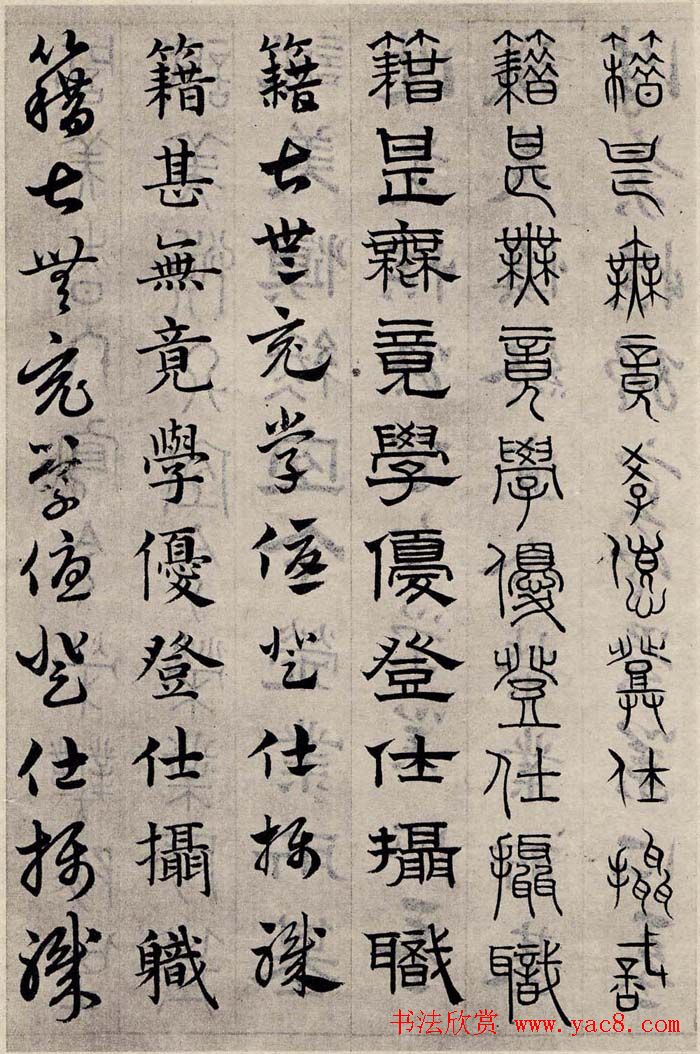 籍甚無竟學優登仕攝職
籍甚無竟學優登仕攝職
籍甚無竟學優登仕攝職
籍甚無竟學優登仕攝職
籍甚無竟學優登仕攝職
籍甚無竟學優登仕攝職
书法欣赏 www.yac8.com